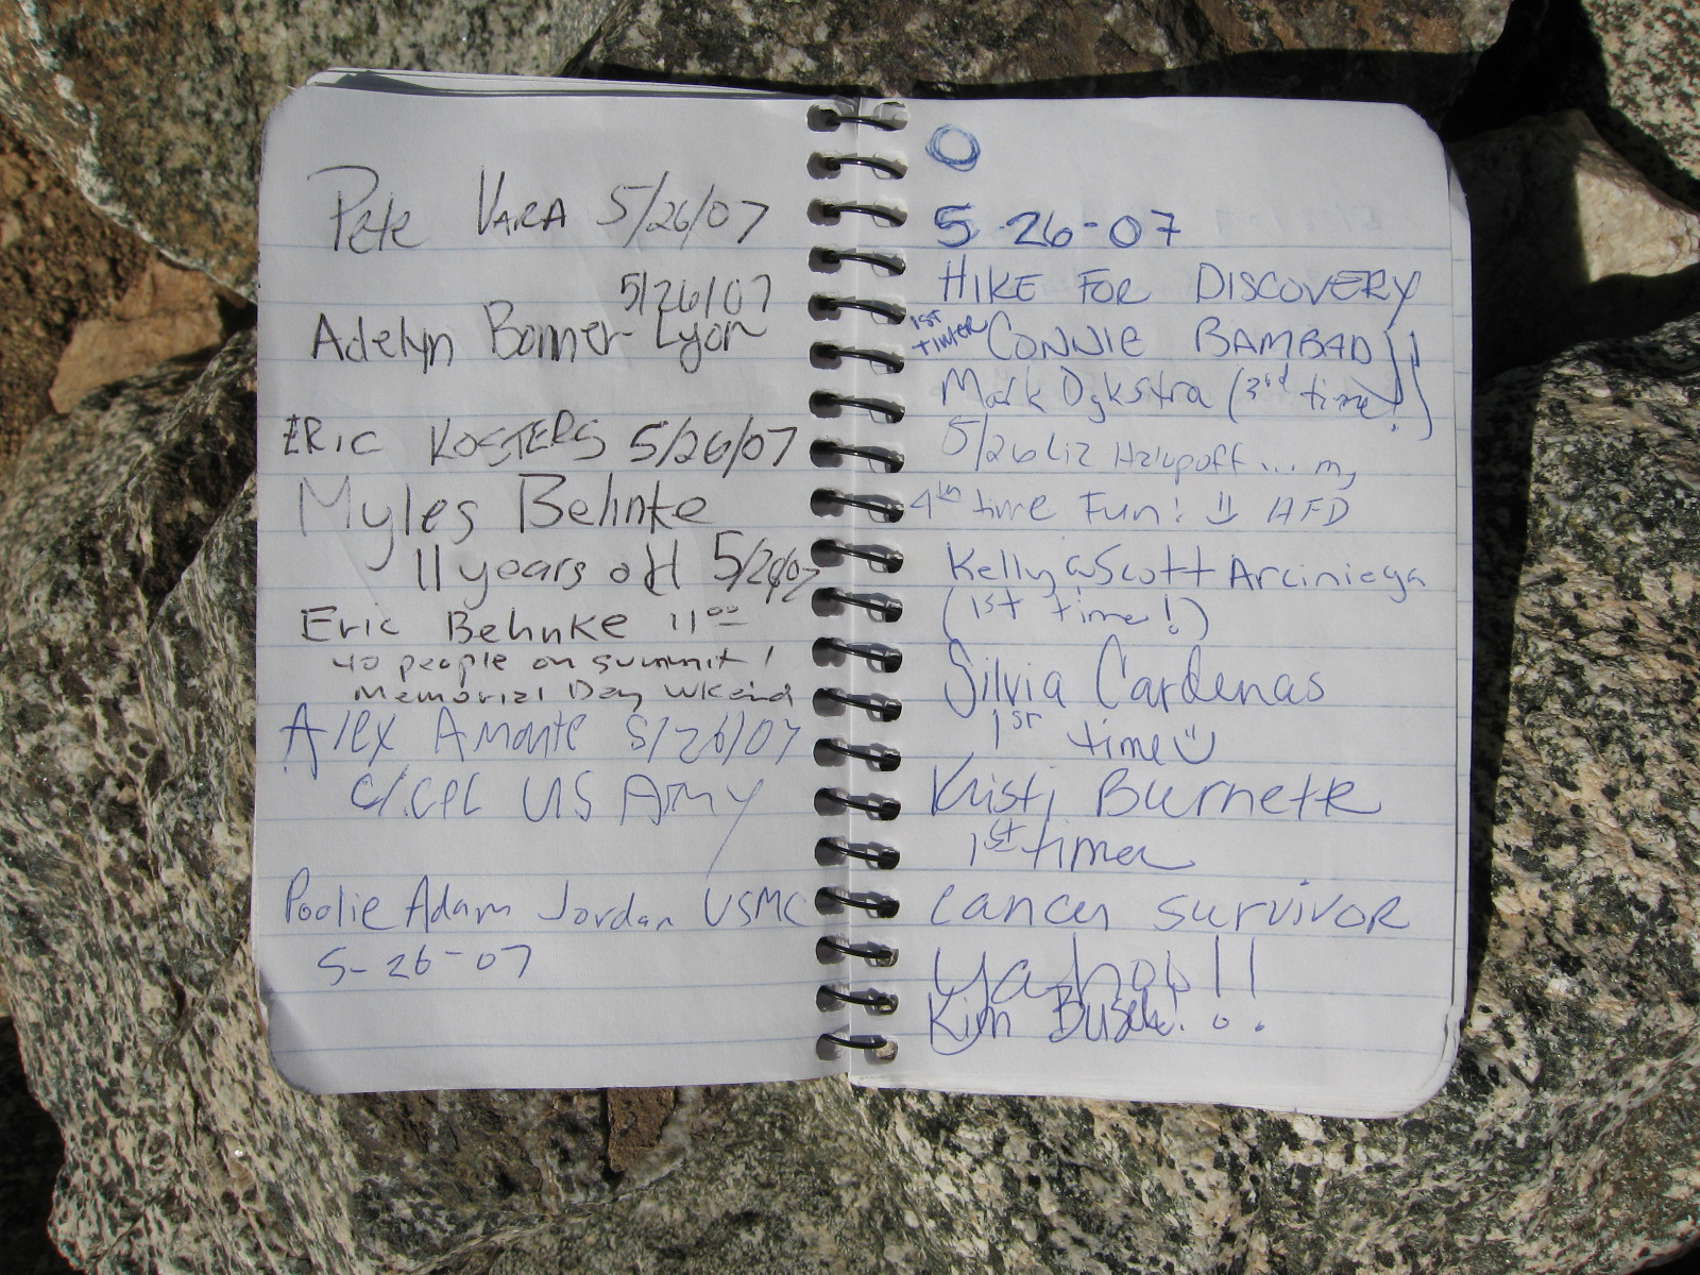 Pete Vara 5/26/07
5/26/07
Adelyn Bonner-Lyon
Eric Kosters 5/26/07
Myles Behnke
11 years old 5/26/07
Eric Behnke 11⁰⁰
40 people on summit!
Memorial Day Wkend
Alex Amante 5/26/07
C/CPL US Army
Poolie Adam Jordan USMC
5-26-07
5 26-07
HIKE FOR DISCOVERY
1ST TIMER CONNIE BAMBAD
Mark Dykstra (3rd time!)
5/26 Liz ... my
4th time Fun! AFD
Kelly & Scott Arciniega
(1st time!)
Silvia Cardenas
1st time
Kristi Burnette
1st timer
cancer survivor
Yahoo!!
Kim